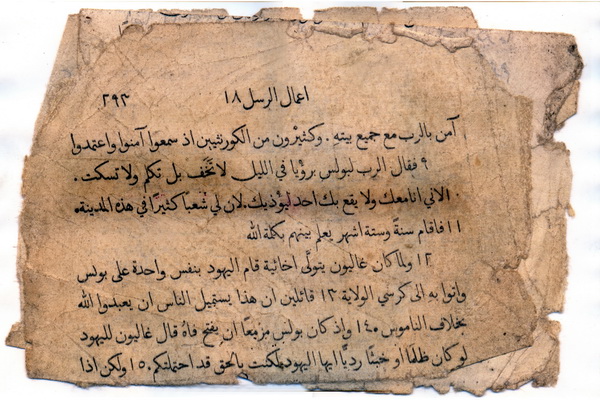 اعمال الرسل ١٨ ٢٩٣
آمن بالرب مع جميع بيته . وكثيرون من الكورنثيين اذ سمعوا آمنوا واعتمدوا
٩ فقال الرب لبولس برؤيا في الليل لا تخَف بل تكم ولا تسكت .
١ لاني انا معك ولا يقع بك احد ليؤذيك . لان لي شعبا كثيرًا في هذه المدينة .
١١ فاقام سنةً وستة اشهر يعلم بينهم بكلمة الله
١٢ ولما كان غاليون يتولى اخائية قام اليهود بنفس واحدة على بولس
واتوا به الى كرسي الولاية ١٣ قائلين ان هذا يستميل الناس ان يعبدوا الله
بخلاف الناموس . ١٤ واذ كان بولس مزمعًا ان يفتح فاهُ قال غاليون لليهود
لو كان ظلمًا او خبثًا رديًّا ايها اليهود لكنت بالحق قد احتملتكم . ١٥ ولكن اذا